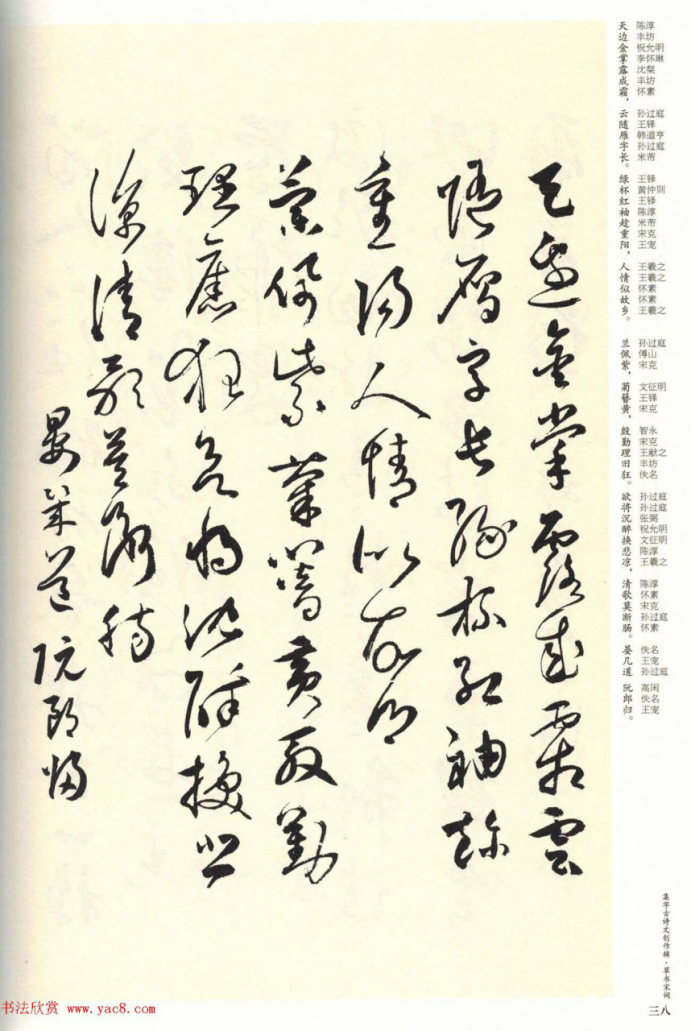 陈淳
丰坊
祝允明
李怀琳
沈粲
丰坊
怀素
孙过庭
王铎
韩道亨
孙过庭
米芾
王铎
黄仲则
王铎
陈淳
米芾
宋克
王宠
王羲之
王羲之
怀素
怀素
王羲之
孙过庭
傅山
宋克
文征明
王铎
宋克
智永
宋克
王献之
丰坊
佚名
孙过庭
孙过庭
张弼
祝允明
文征明
陈淳
王羲之
陈淳
怀素
宋克
孙过庭
怀素
佚名
王宠
孙过庭
高闲
佚名
王宠
天边金掌露成霜，云随雁字长。绿杯红袖趁重阳，人情似故乡。兰佩紫，菊簪黄，殷勤理旧狂。欲将沉醉换悲凉，清歌莫断肠。晏几道 阮郎归。
天邊金掌露成霜雲
隨雁字長綠杯紅袖趁
重陽人情似故鄉
蘭佩紫菊簪黃殷勤
理舊狂欲將沈醉換悲
涼清歌莫斷腸
晏幾道 阮郎歸
集字古诗文创作辑·草书宋词
三八
书法欣赏 www.yac8.com